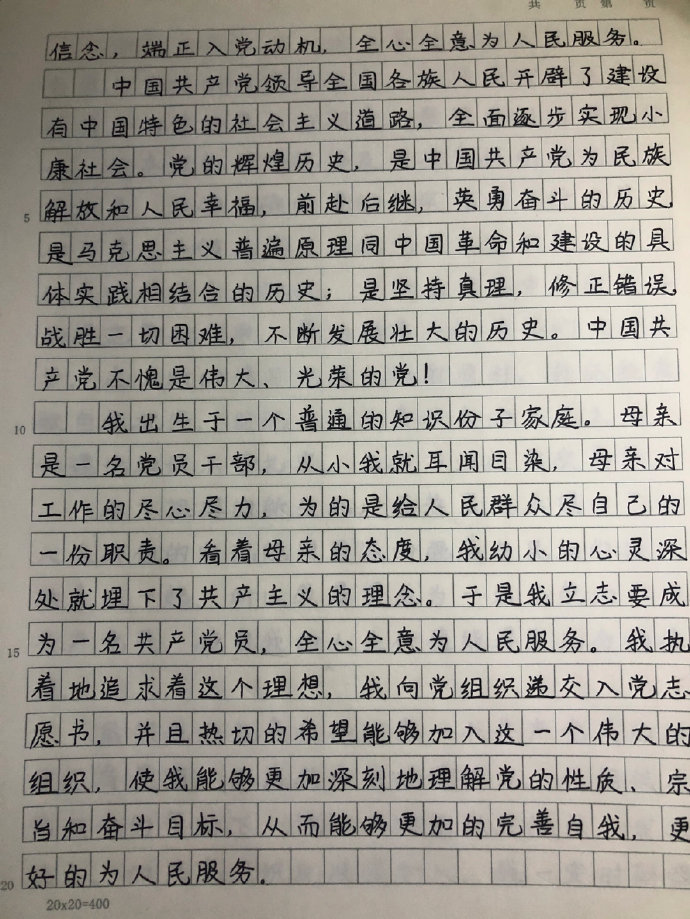 共 页 第 页
信念，端正入党动机，全心全意为人民服务。
中国共产党领导全国各族人民开辟了建设
有中国特色的社会主义道路，全面逐步实现小
康社会。党的辉煌历史，是中国共产党为民族
5 解放和人民幸福，前赴后继，英勇奋斗的历史
是马克思主义普遍原理同中国革命和建设的具
体实践相结合的历史；是坚持真理，修正错误，
战胜一切困难，不断发展壮大的历史。中国共
产党不愧是伟大、光荣的党！
10 我出生于一个普通的知识份子家庭。母亲
是一名党员干部，从小我就耳闻目染，母亲对
工作的尽心尽力，为的是给人民群众尽自己的
一份职责。看着母亲的态度，我幼小的心灵深
处就埋下了共产主义的理念。于是我立志要成
15 为一名共产党员，全心全意为人民服务。我执
着地追求着这个理想，我向党组织递交入党志
愿书，并且热切的希望能够加入这一个伟大的
组织，使我能够更加深刻地理解党的性质、宗
旨和奋斗目标，从而能够更加的完善自我，更
20 好的为人民服务。
20x20=400